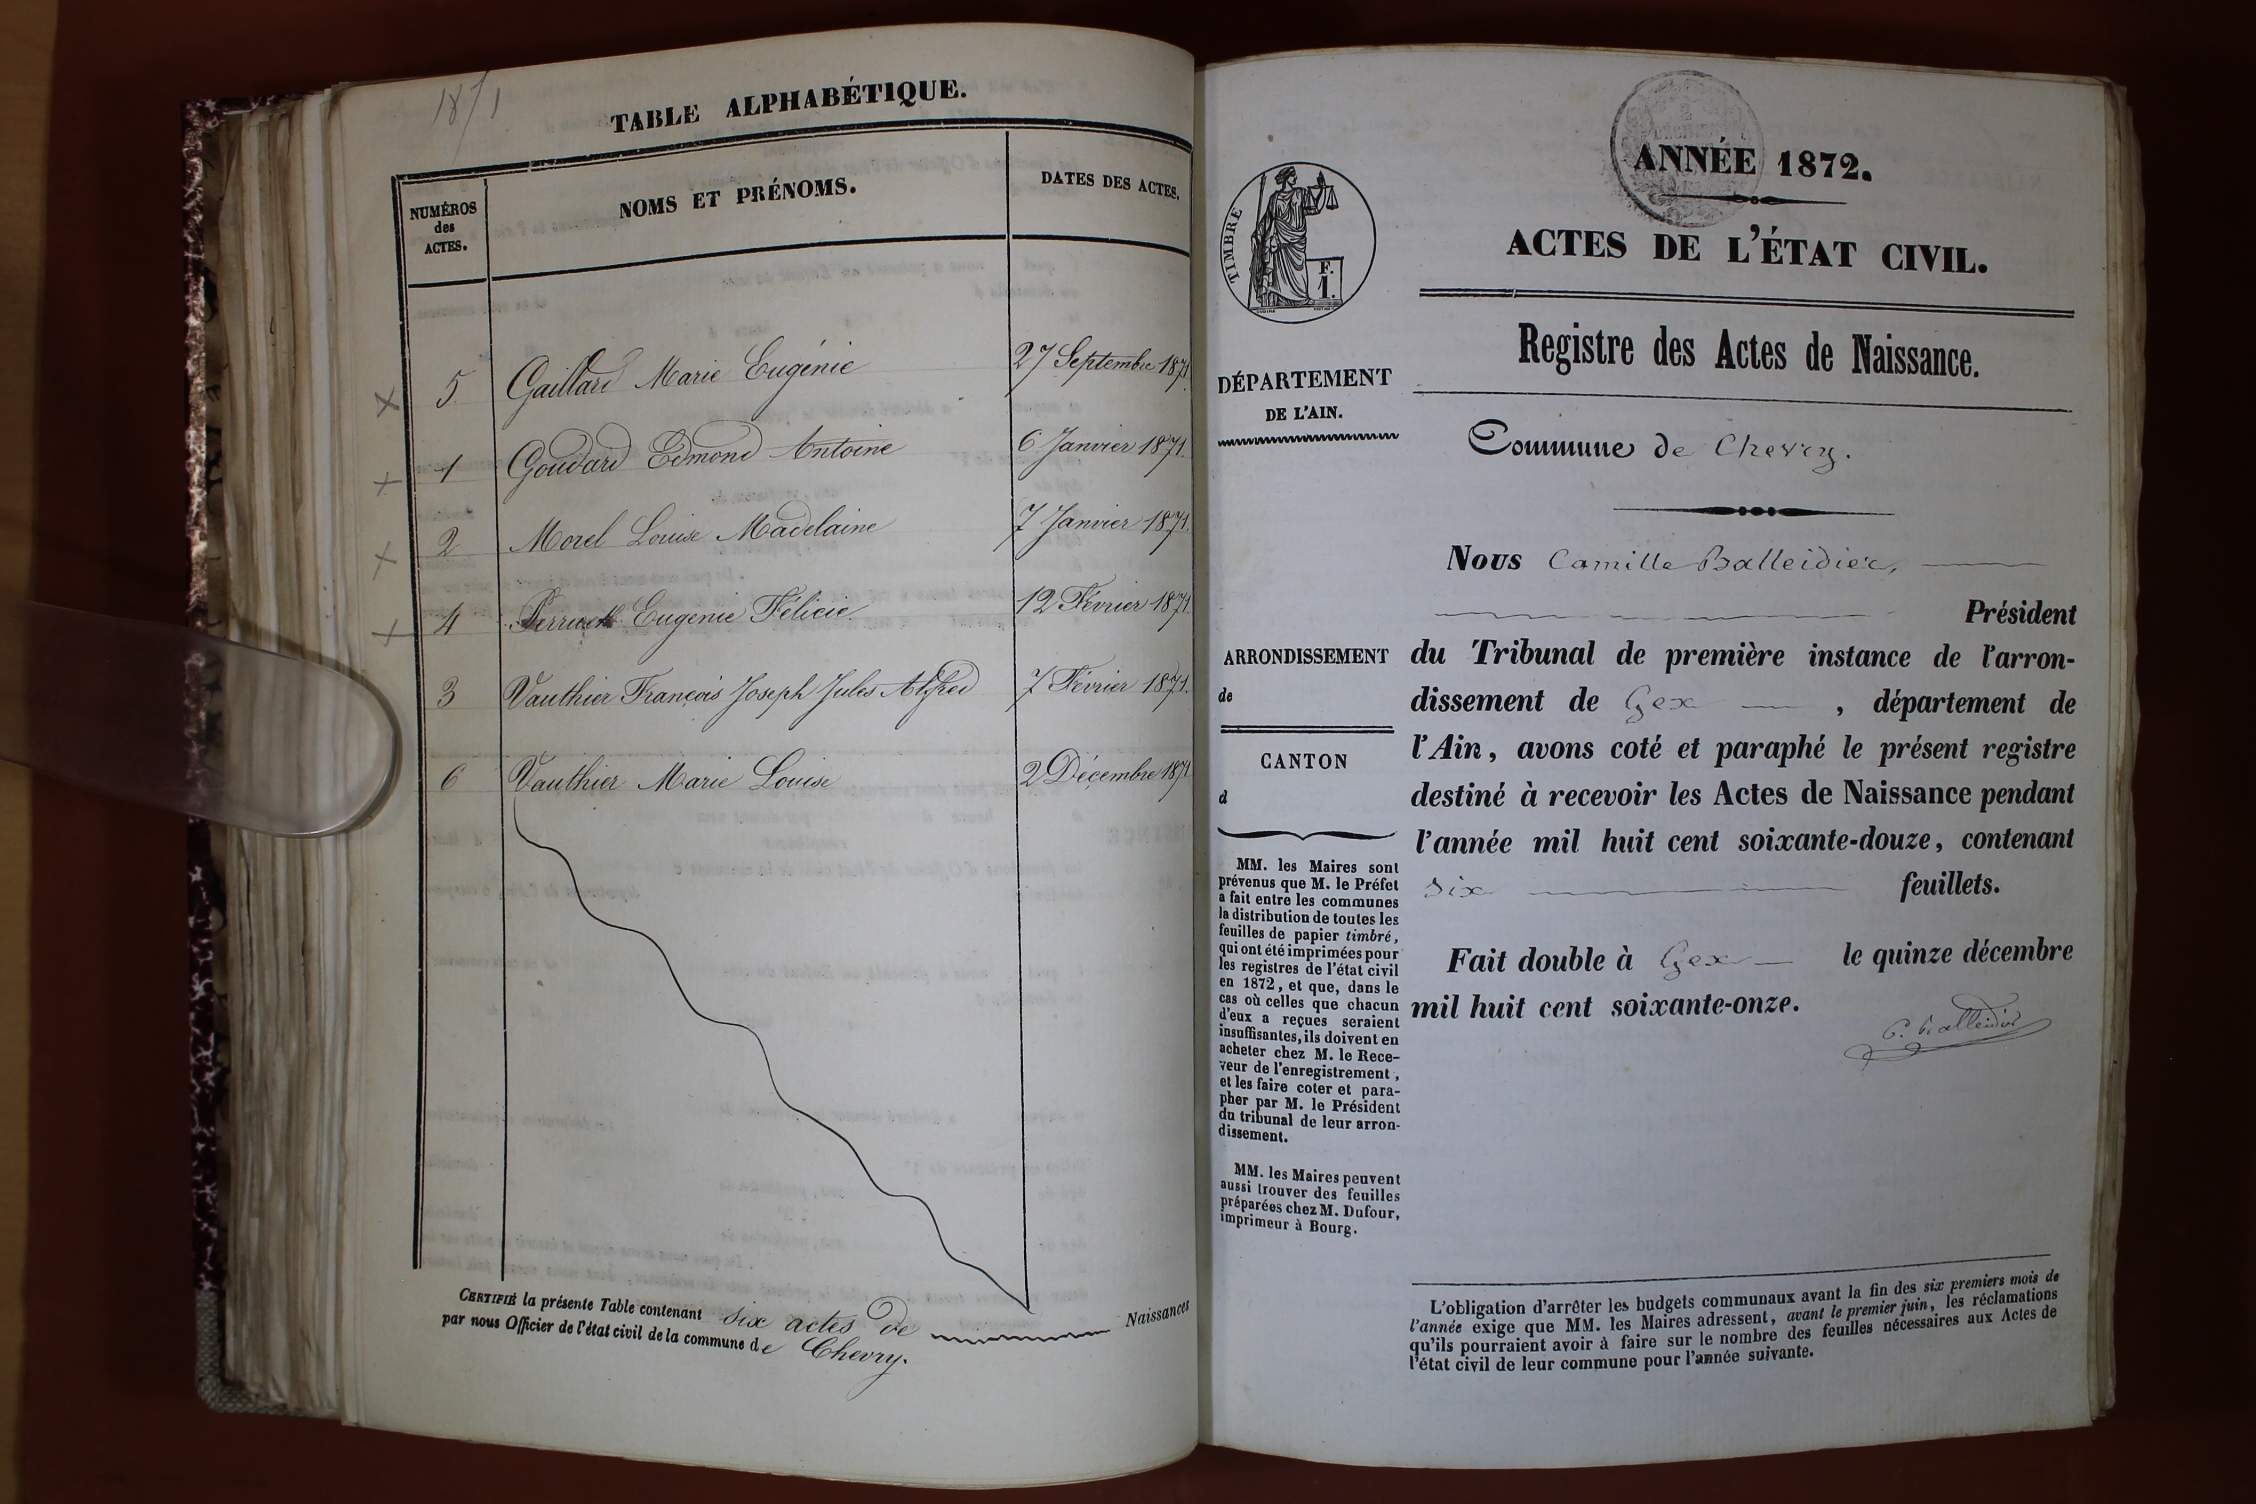 1871
TABLE ALPHABÉTIQUE.
NUMÉROS
des
ACTES.
NOMS ET PRÉNOMS.
DATES DES ACTES.
x 5 Gaillard Marie Eugénie 27 Septembre 1871.
x 1 Goudard Edmond Antoine 6 Janvier 1871.
x 2 Morel Louise Madelaine 7 Janvier 1871.
x 4 Eugenie Félicie. 12 Février 1871.
3 Vauthier François Joseph Jules Alfred 7 Février 1871.
6 Vauthier Marie Louise 2 Décembre 1871
CERTIFIÉ la présente Table contenant six actes de Naissances
par nous Officier de l'état civil de la commune de Chevry.
ANNÉE 1872.
ACTES DE L'ÉTAT CIVIL.
TIMBRE
F.
1.
Registre des Actes de Naissance.
DÉPARTEMENT
DE L'AIN.
Commune de Chevry.
Nous Camille Balleidier,
Président
du Tribunal de première instance de l'arron-
dissement de Gex , département de
l'Ain, avons coté et paraphé le présent registre
destiné à recevoir les Actes de Naissance pendant
l'année mil huit cent soixante-douze, contenant
six feuillets.
Fait double à Gex le quinze décembre
mil huit cent soixante-onze.
C. Balleidier
ARRONDISSEMENT
de
CANTON
d
MM. les Maires sont
prévenus que M. le Préfet
a fait entre les communes
la distribution de toutes les
feuilles de papier timbré,
qui ont été imprimées pour
les registres de l'état civil
en 1872, et que, dans le
cas où celles que chacun
d'eux a reçues seraient
insuffisantes, ils doivent en
acheter chez M. le Rece-
veur de l'enregistrement,
et les faire coter et para-
pher par M. le Président
du tribunal de leur arron-
dissement.
MM. les Maires peuvent
aussi trouver des feuilles
préparées chez M. Dufour,
imprimeur à Bourg.
L'obligation d'arrêter les budgets communaux avant la fin des six premiers mois de
l'année exige que MM. les Maires adressent, avant le premier juin, les réclamations
qu'ils pourraient avoir à faire sur le nombre des feuilles nécessaires aux Actes de
l'état civil de leur commune pour l'année suivante.